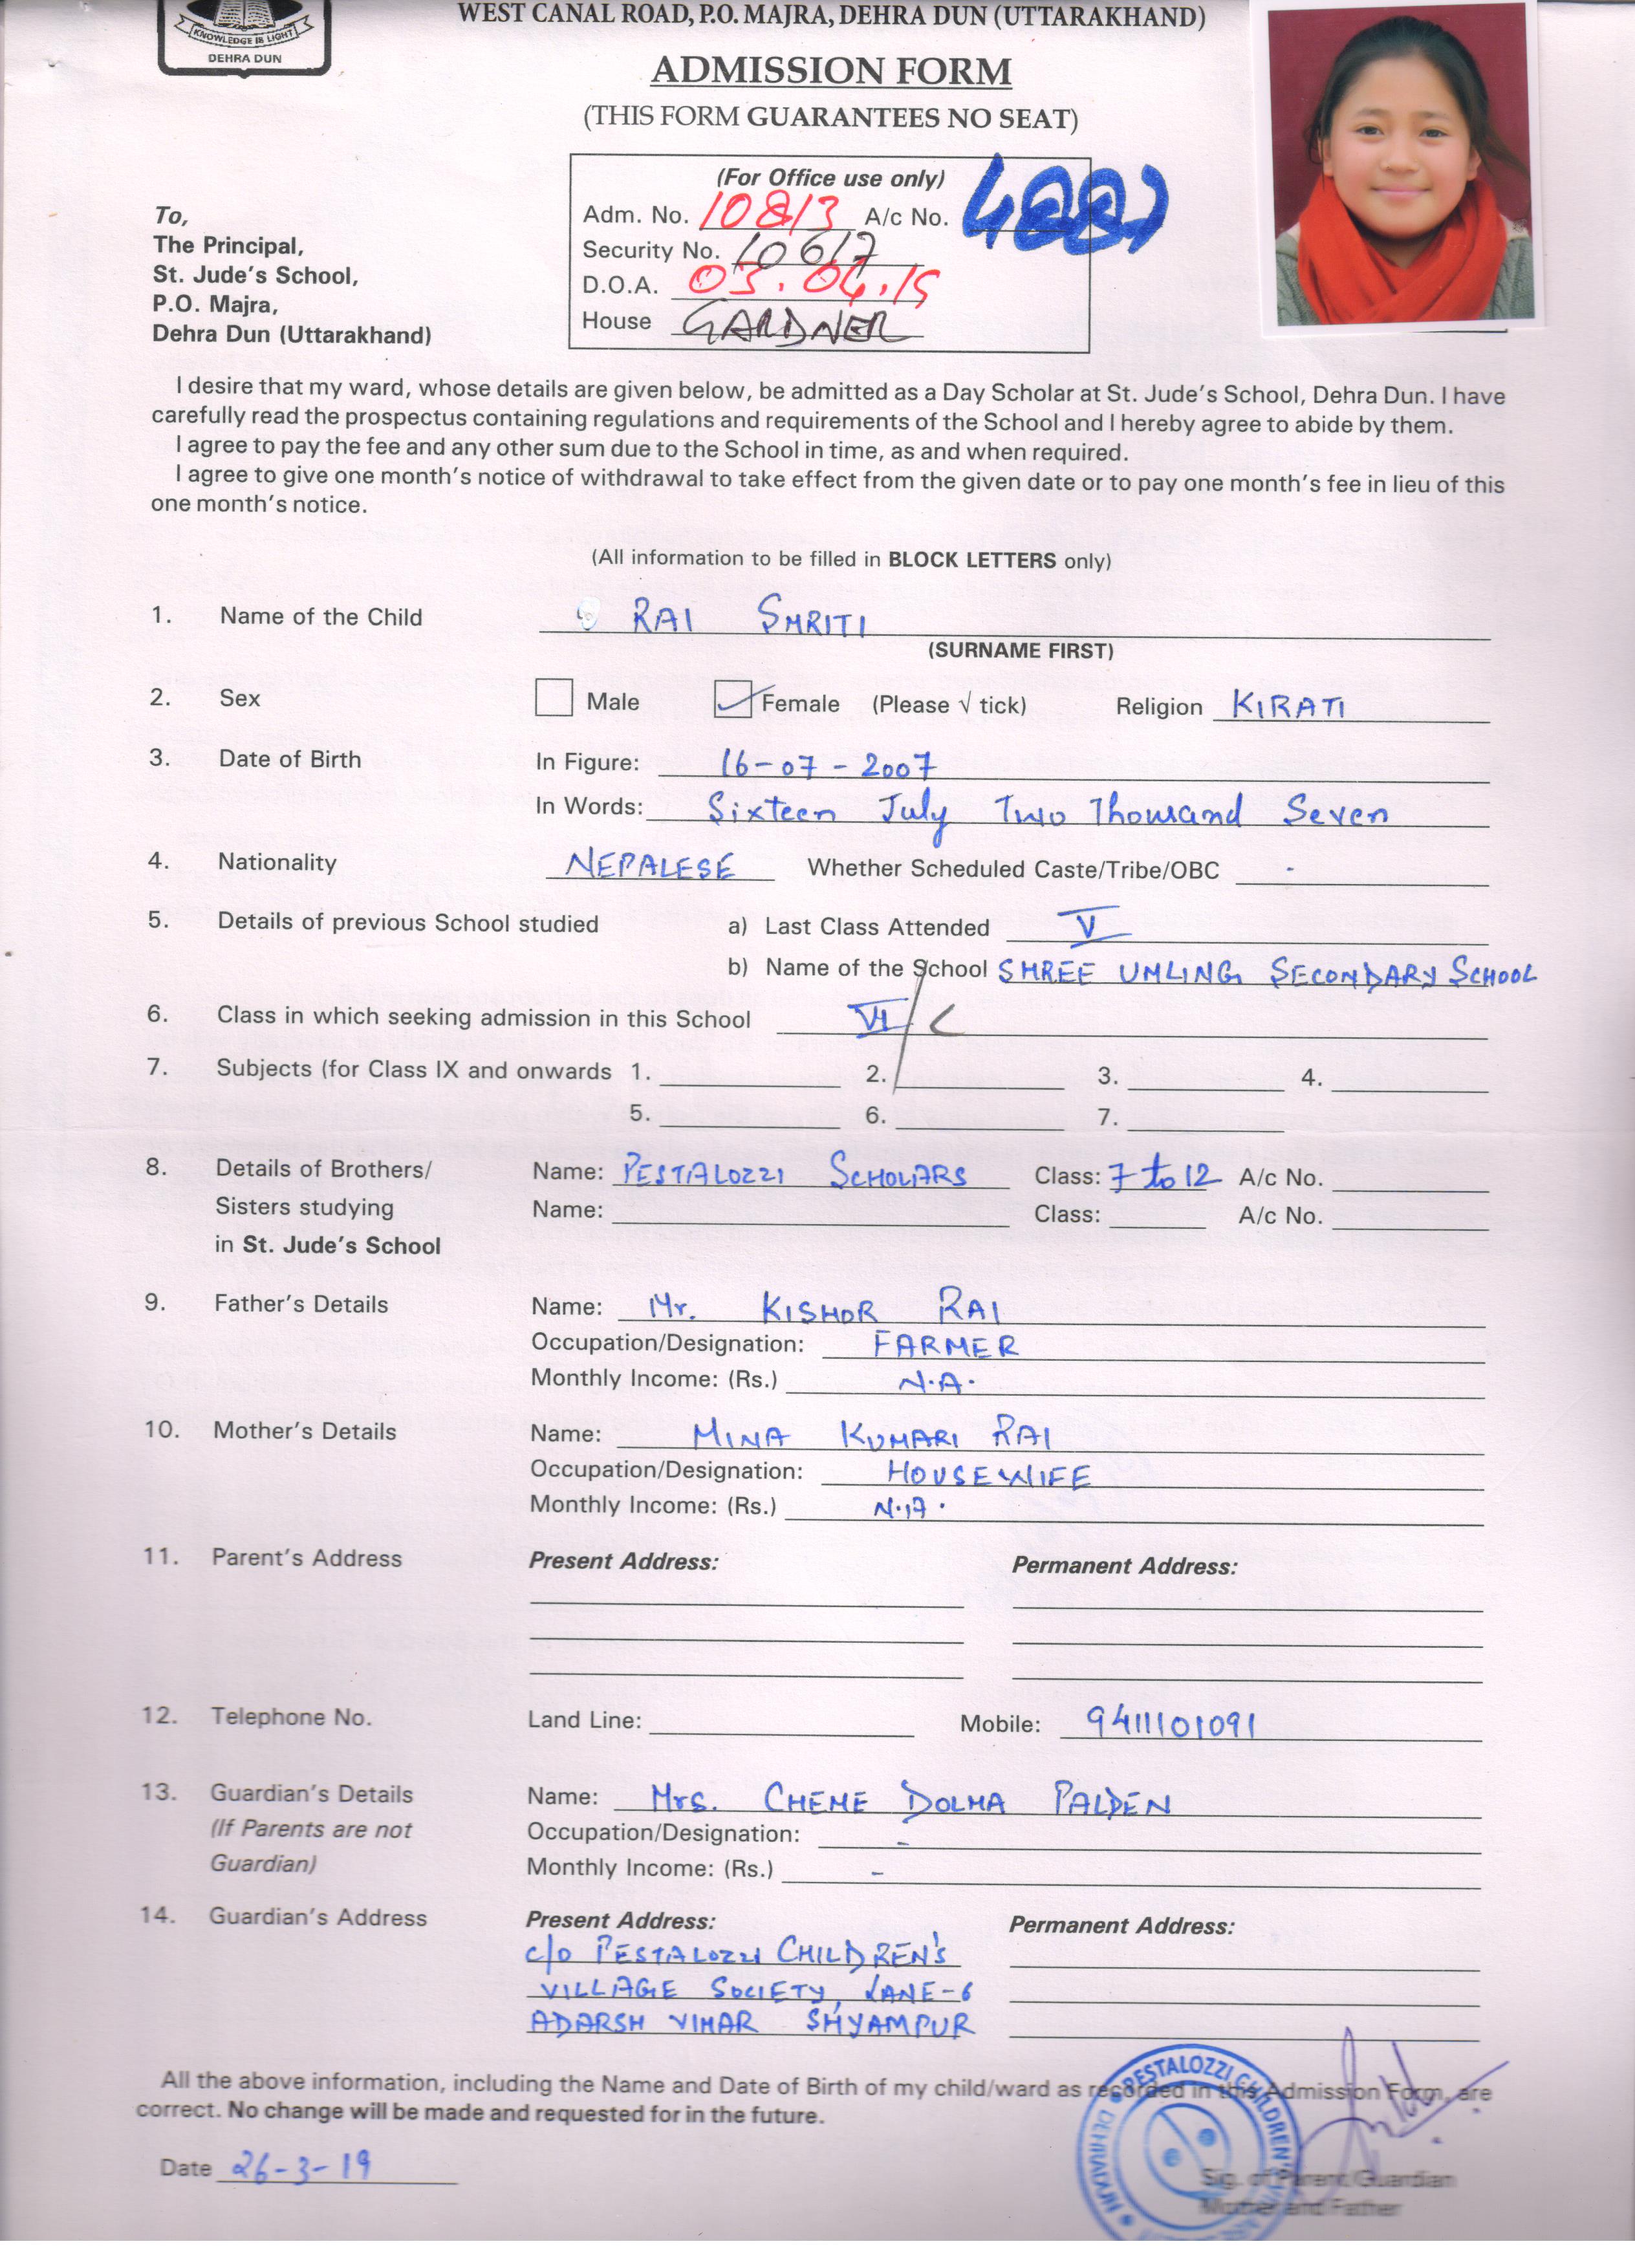 KNOWLEDGE IS LIGHT
DEHRA DUN
WEST CANAL ROAD, P.O. MAJRA, DEHRA DUN (UTTARAKHAND)
ADMISSION FORM
(THIS FORM GUARANTEES NO SEAT)
(For Office use only)
Adm. No. 10813 A/c No.
Security No. 10617
D.O.A. 03.04.19
House GARDNER
To,
The Principal,
St. Jude's School,
P.O. Majra,
Dehra Dun (Uttarakhand)
I desire that my ward, whose details are given below, be admitted as a Day Scholar at St. Jude's School, Dehra Dun. I have
carefully read the prospectus containing regulations and requirements of the School and I hereby agree to abide by them.
I agree to pay the fee and any other sum due to the School in time, as and when required.
I agree to give one month's notice of withdrawal to take effect from the given date or to pay one month's fee in lieu of this
one month's notice.
(All information to be filled in BLOCK LETTERS only)
1. Name of the Child RAI SMRITI
(SURNAME FIRST)
2. Sex Male Female (Please √ tick) Religion KIRATI
3. Date of Birth In Figure: 16-07-2007
In Words: Sixteen July Two Thousand Seven
4. Nationality NEPALESE Whether Scheduled Caste/Tribe/OBC -
5. Details of previous School studied a) Last Class Attended V
b) Name of the School SHREE UMLING SECONDARY SCHOOL
6. Class in which seeking admission in this School VI/C
7. Subjects (for Class IX and onwards 1. 2. 3. 4.
5. 6. 7.
8. Details of Brothers/ Name: PESTALOZZI SCHOLARS Class: 7 to 12 A/c No.
Sisters studying Name: Class: A/c No.
in St. Jude's School
9. Father's Details Name: Mr. KISHOR RAI
Occupation/Designation: FARMER
Monthly Income: (Rs.) N.A.
10. Mother's Details Name: MINA KUMARI RAI
Occupation/Designation: HOUSEWIFE
Monthly Income: (Rs.) N.A.
11. Parent's Address Present Address: Permanent Address:
12. Telephone No. Land Line: Mobile: 9411101091
13. Guardian's Details Name: Mrs. CHEME DOLMA PALDEN
(If Parents are not Occupation/Designation: -
Guardian) Monthly Income: (Rs.) -
14. Guardian's Address Present Address: Permanent Address:
c/o PESTALOZZI CHILDREN'S
VILLAGE SOCIETY, LANE-6
ADARSH VIHAR SHYAMPUR
All the above information, including the Name and Date of Birth of my child/ward as recorded in this Admission Form, are
correct. No change will be made and requested for in the future.
Date 26-3-19
PESTALOZZI CHILDREN'S
Sig. of Parent/Guardian
Mother and Father